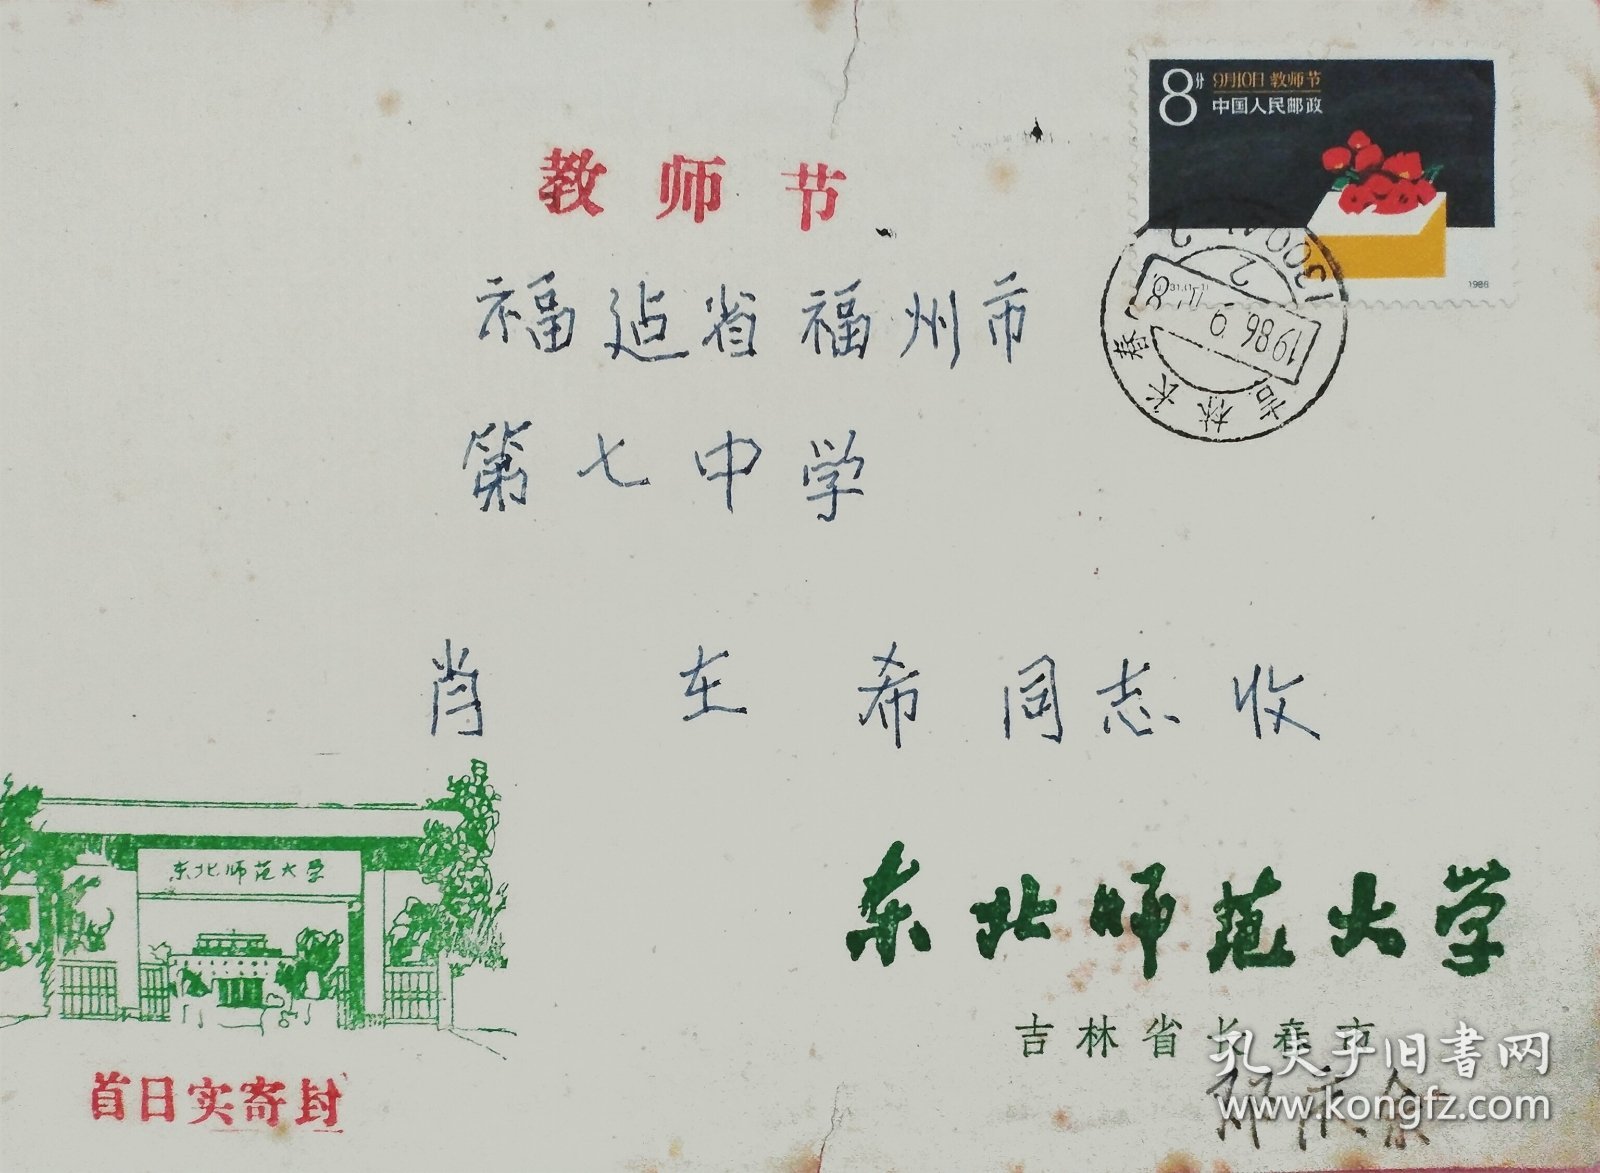 8分 9月10日 教师节
中国人民邮政
1986
130041
1986.9
吉林长春
教师节
福建省福州市
第七中学
肖东希同志收
东北师范大学
东北师范大学
吉林省长春市
首日实寄封
孔夫子旧书网
www.kongfz.com